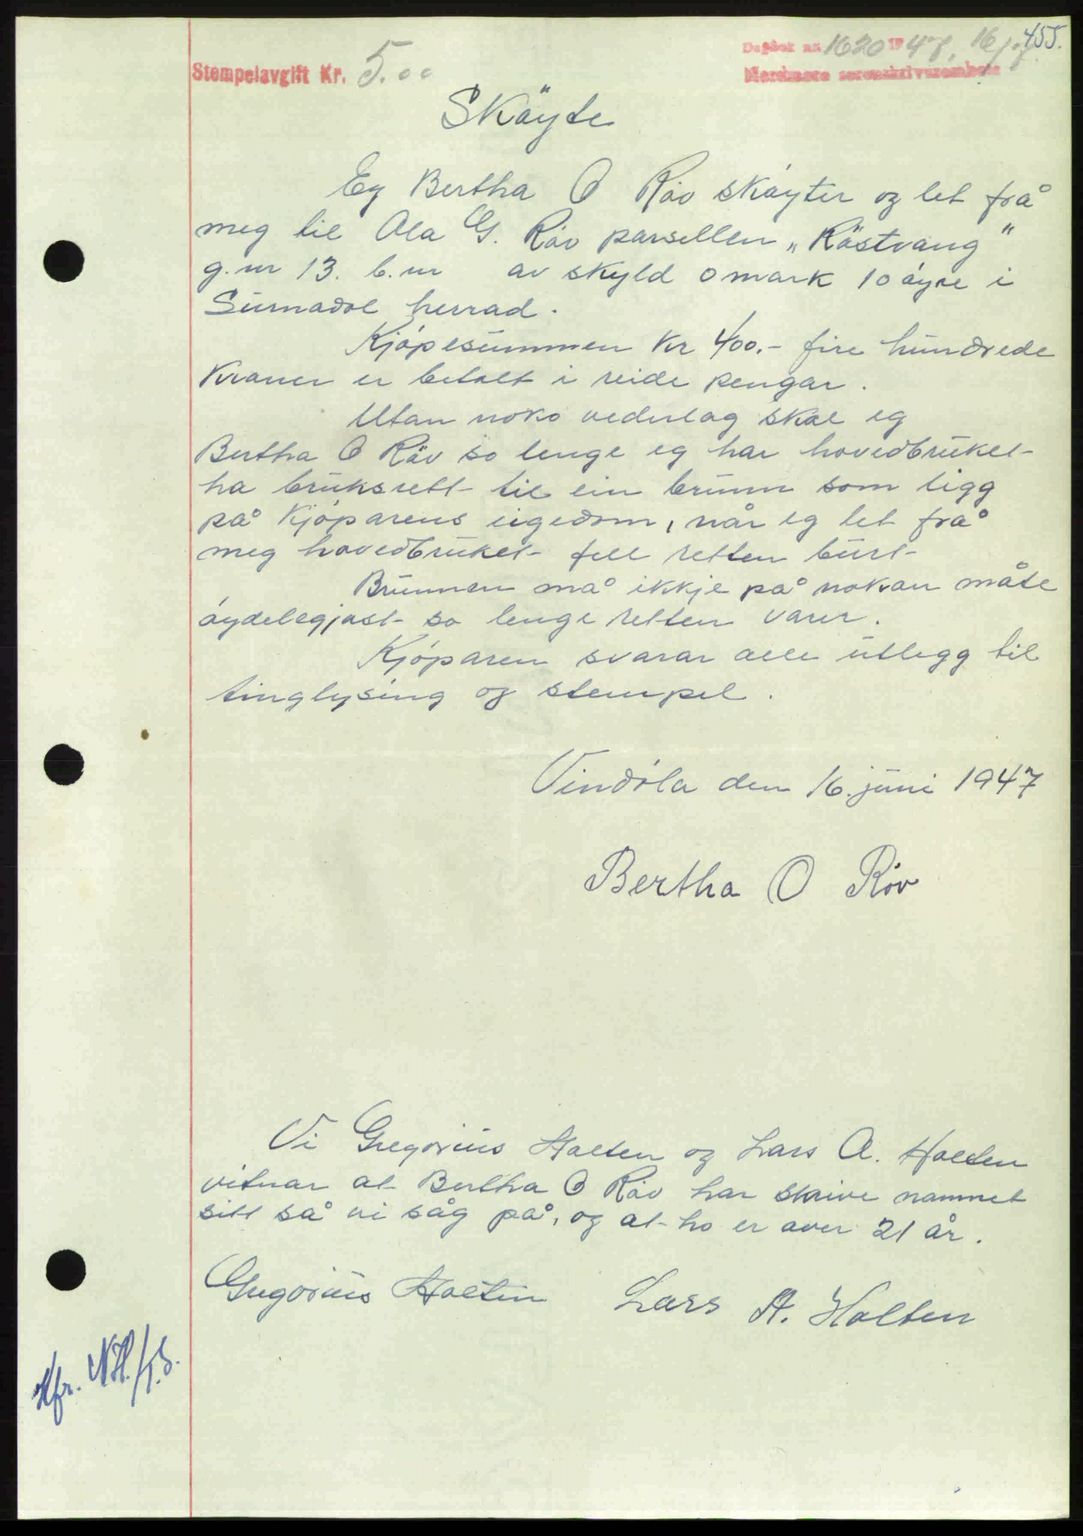 455.
Dagbok nr. 1620 1947, 16/7
Stempelavgift Kr. 5.00
Nordmøre sorenskriverembete
Skøyte
Eg Bertha O Røv skøyter og let frå
meg til Ola G. Røv parsellen „Røstvang"
g.nr 13. b.nr av skyld 0 mark 10 øyre i
Surnadal herrad.
Kjøpesummen kr 400.- fire hundrede
kroner er betalt i reide pengar.
Utan noko vederlag skal eg
Bertha O Røv so lenge eg har hovedbruket
ha bruksrett til ein brunn som ligg
på kjøparens eigedom, når eg let frå
meg hovedbruket fell retten burt
Brunnen må ikkje på nokon måte
øydelegjast so lenge retten varer.
Kjøparen svarar alle utlegg til
tinglysing og stempel.
Vindøla den 16. juni 1947
Bertha O Røv
Vi Gregorius Holten og Lars A. Holten
vitnar at Bertha O Røv har skrive namnet
sitt så vi såg på, og at ho er over 21 år.
Gregorius Holten Lars A. Holten
Kfr.